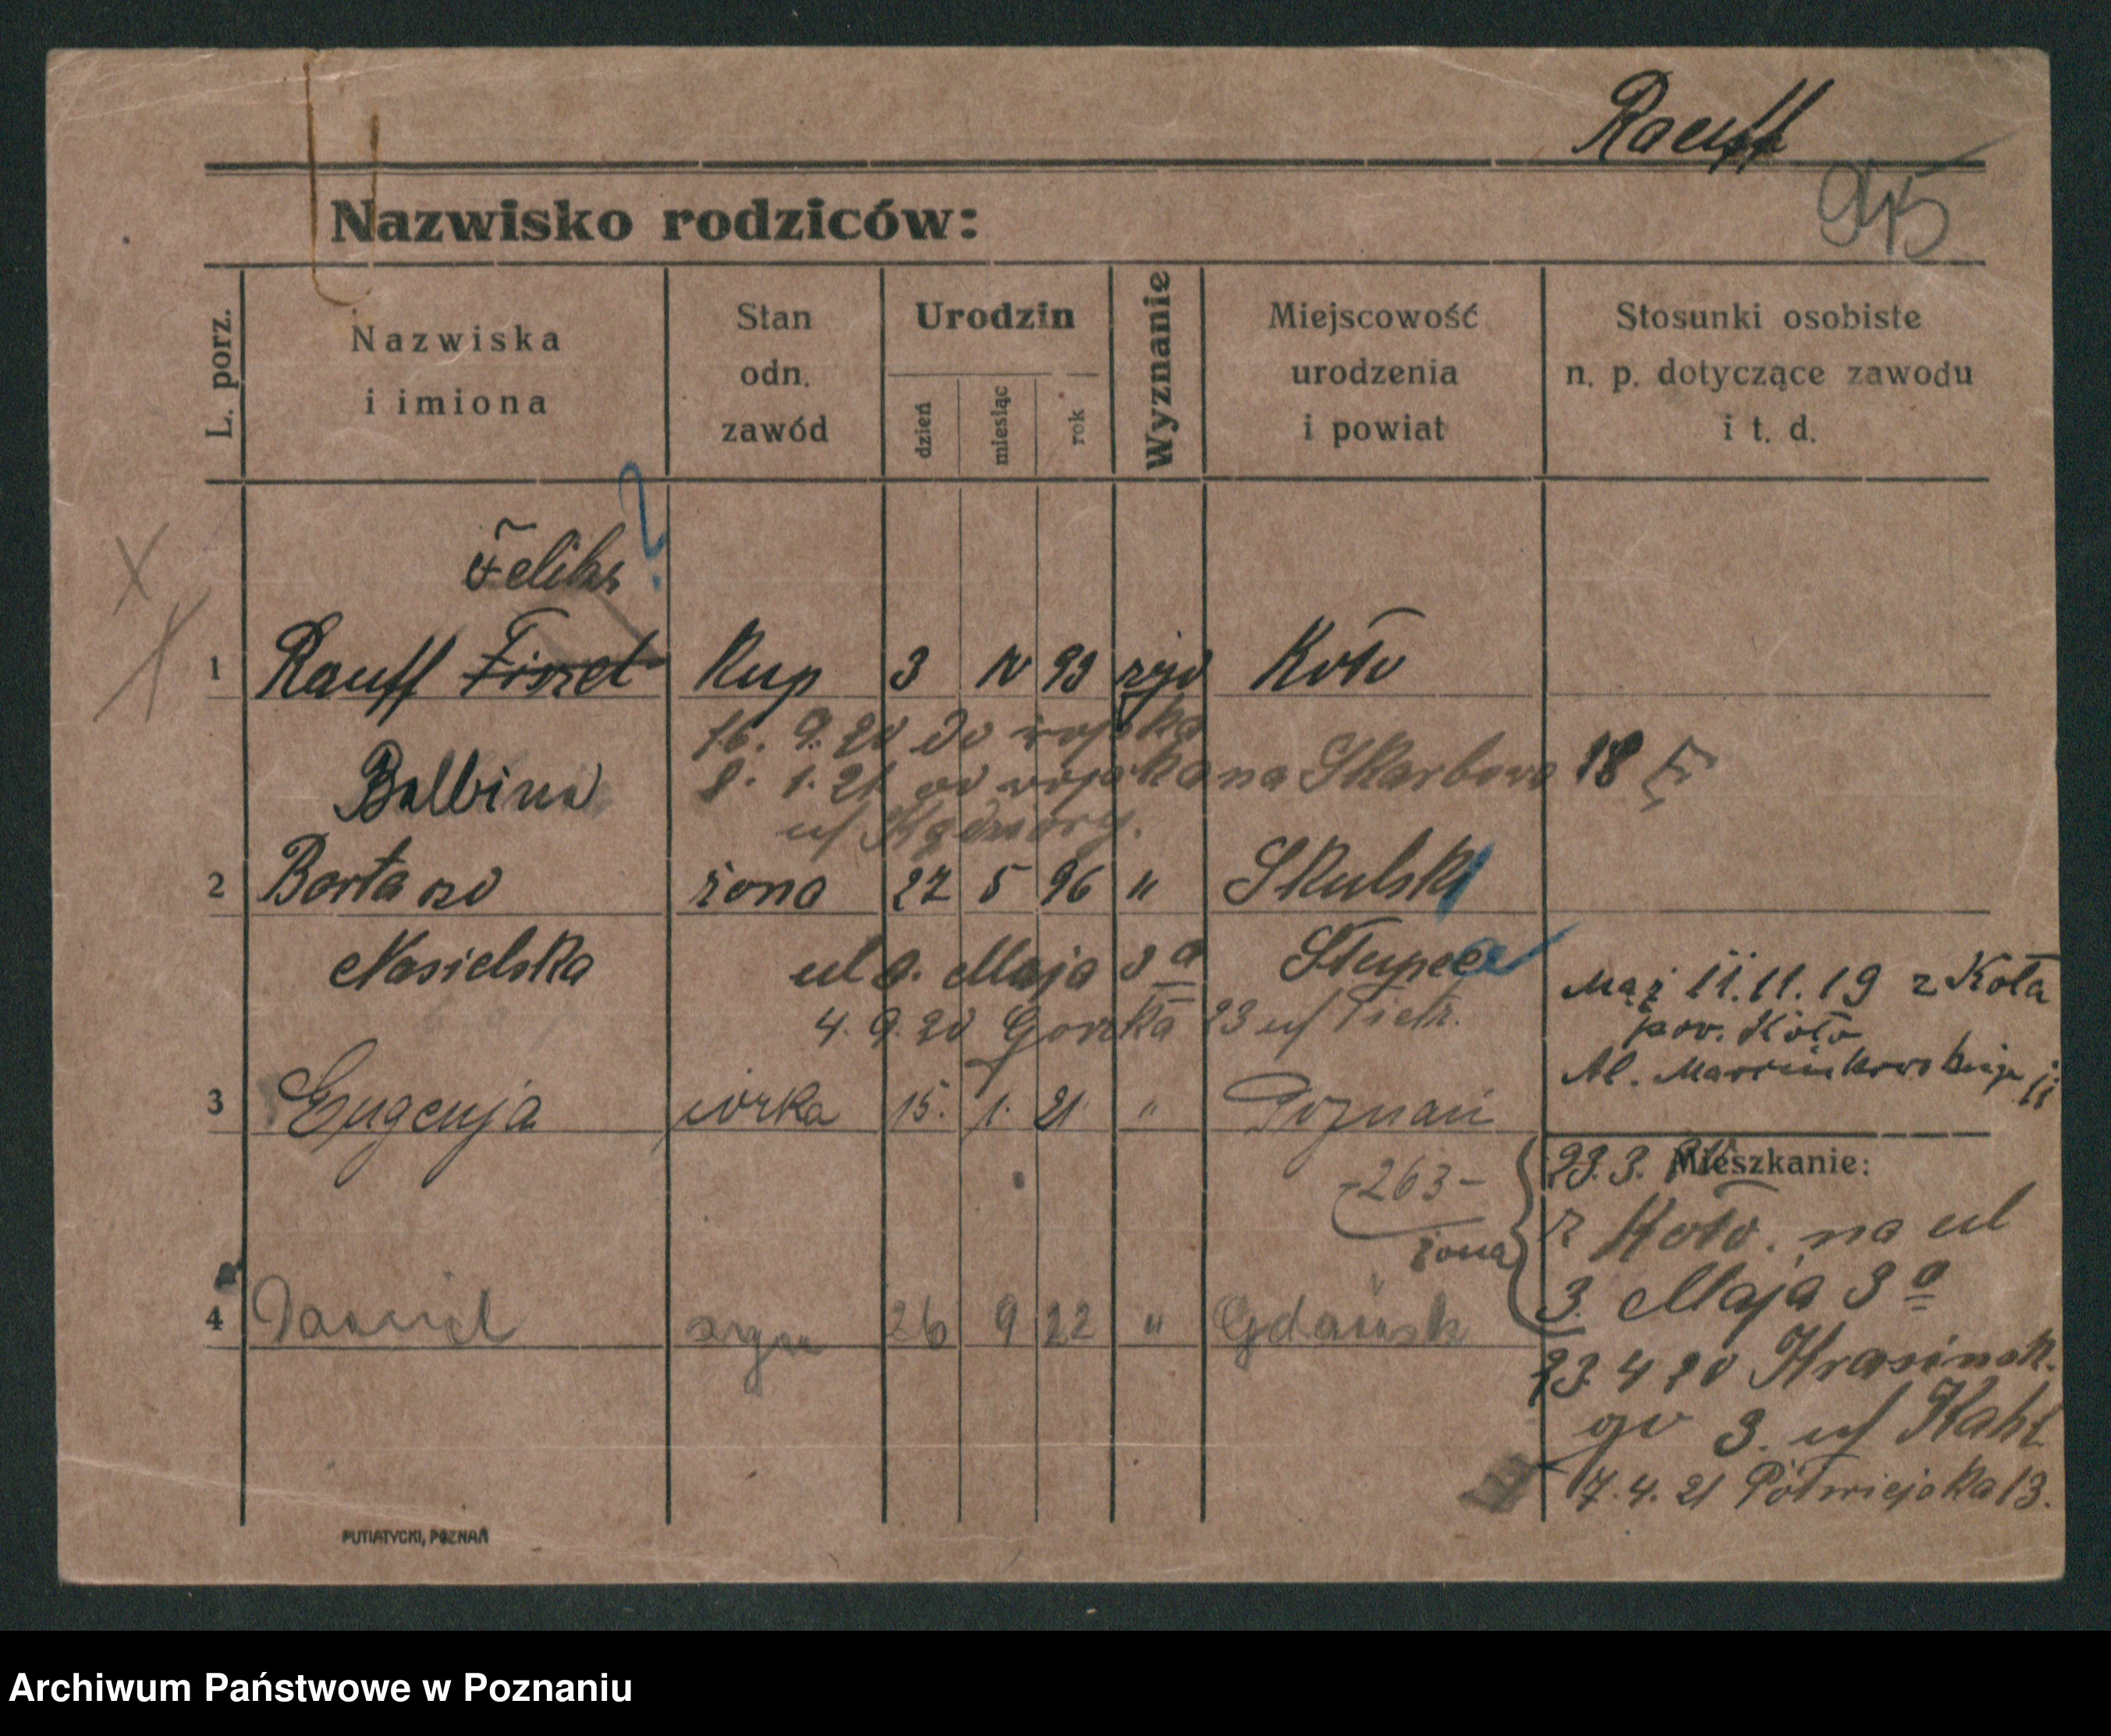 Rauff
945
Nazwisko rodziców:
L. porz.
Nazwiska
i imiona
Stan
odn.
zawód
Urodzin
dzień
miesiąc
rok
Wyznanie
Miejscowość
urodzenia
i powiat
Stosunki osobiste
n. p. dotyczące zawodu
i t. d.
Feliks ?
1 Rauff Fiszel Kup 3 IV 93 żyd Koło
16. 9. 20 do wojska
Balbina
8. 1. 21 od wojska na Skarbowa 18
u/
2 żona 27 5 96 " Skulsk
Nasielska ul 3. Maja 3a Słupca
4. 9. 20 23 u/
Mąż 11.11.19 z Koła
pow. Koło
Al. Marcinkowskiego 11
3 Eugenja córka 15. 1. 21 " Poznań
Mieszkanie:
23.3.
-263-
żona
z Koło. na ul
3. Maja 3a
4 Dawid syn 26 9 22 " Gdańsk
23 4 20 Krasińsk.
go 3. u/
7. 4. 21 Półwiejska 13.
PUTIATYCKI, POZNAŃ
Archiwum Państwowe w Poznaniu